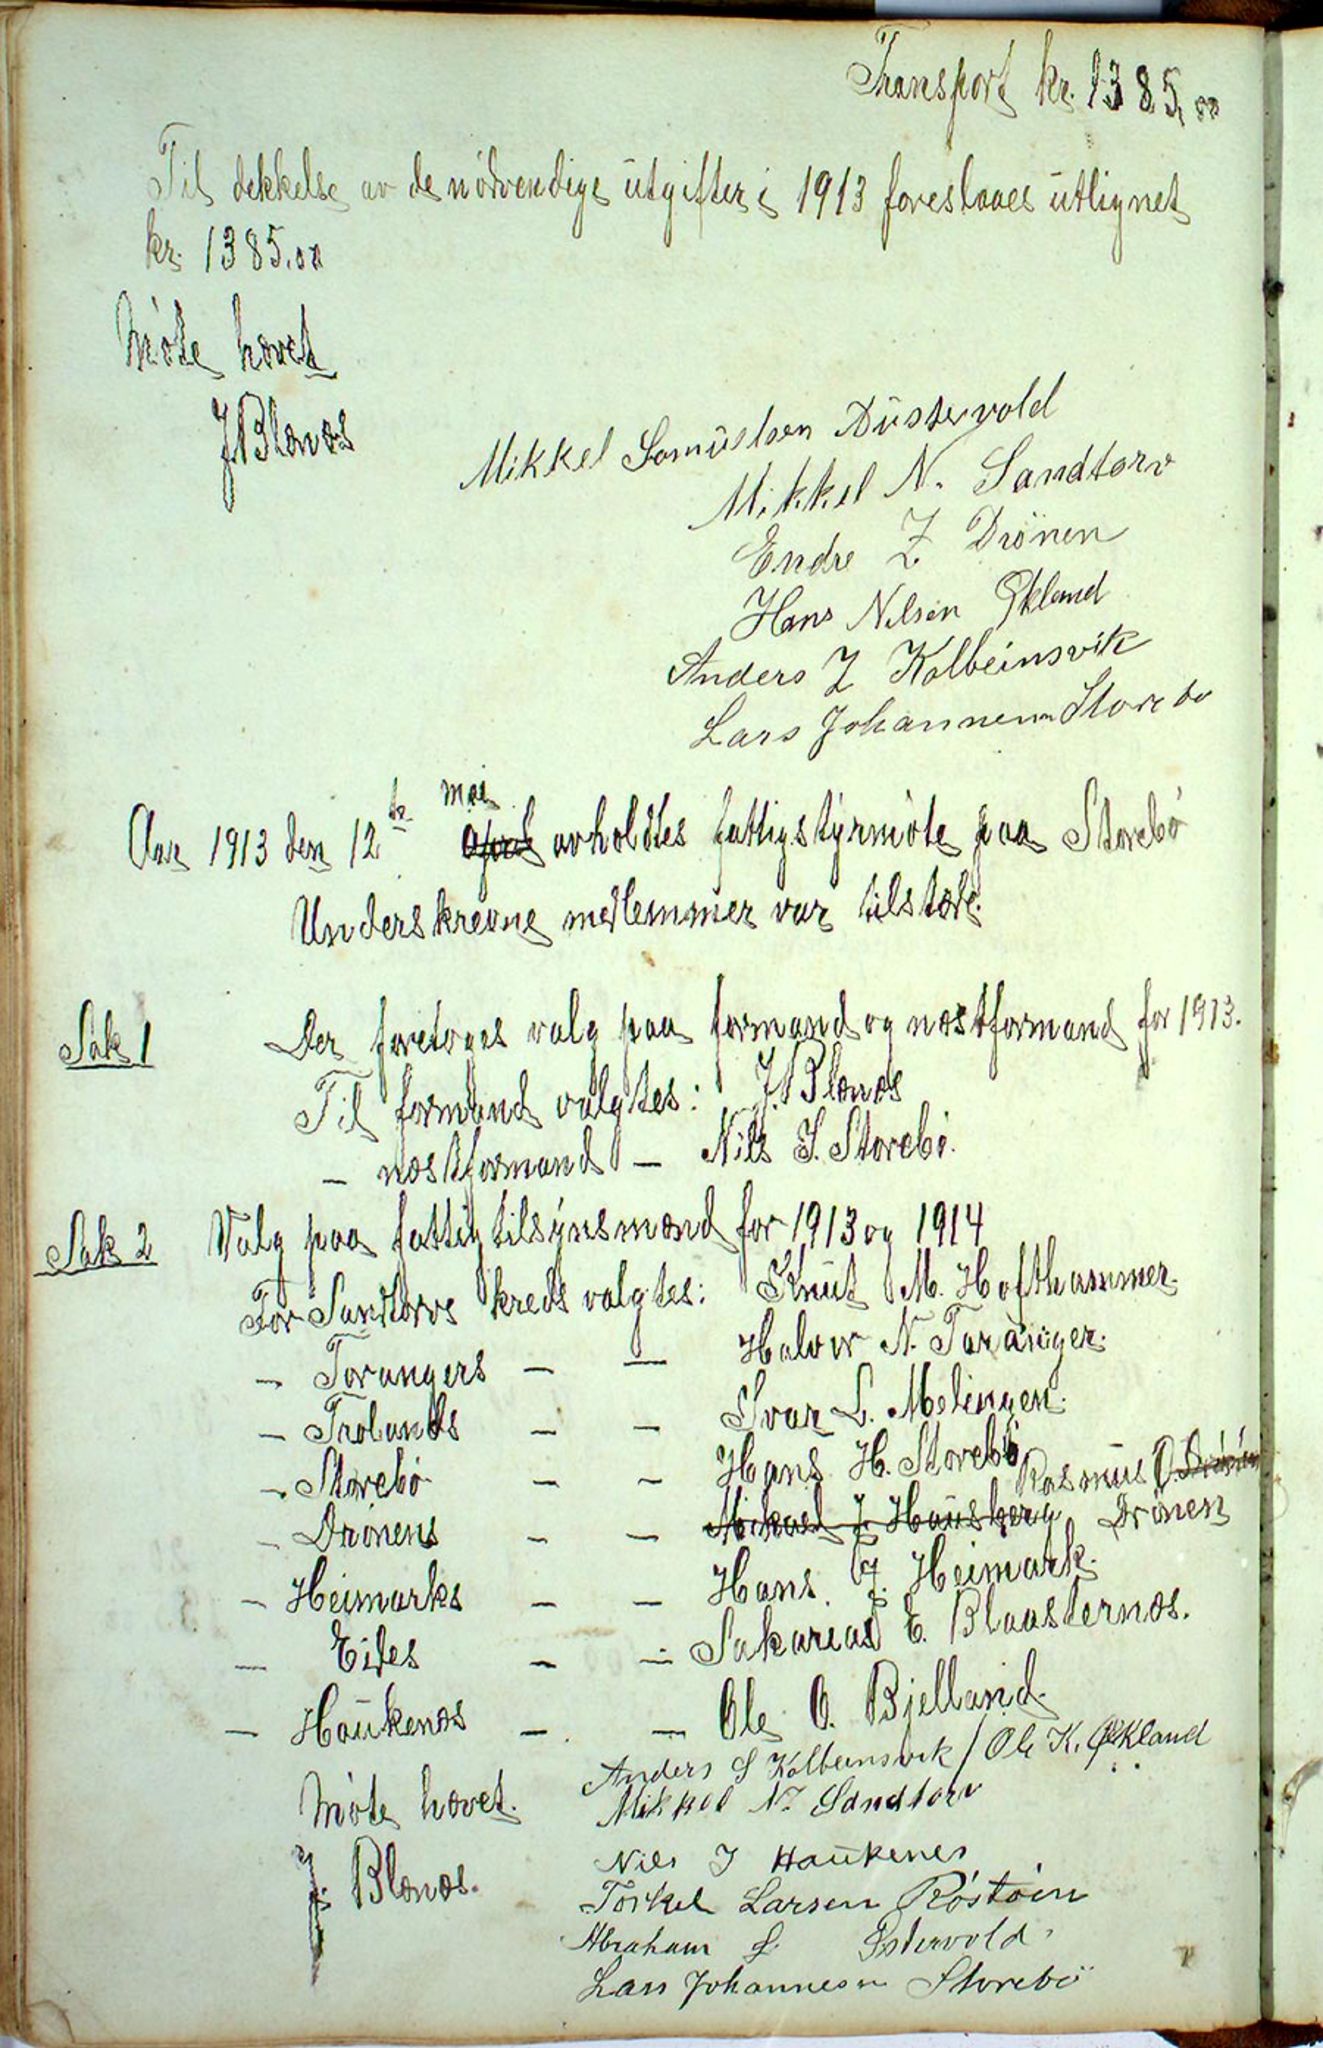 Transport kr. 1385,00
Til dekkelse av de nödvendige utgifter i 1913 foreslaaes utlignet
kr. 1385.00
Möte hævet
J Blænæs
Mikkel Samuelsen Austevold
Mikkel N. Sandtorv
Endre Z Drönen
Hans Nilsen Økland
Anders J Kolbeinsvik
Lars Johannessen Storebö
mai
Aar 1913 den 12te April avholdtes fattigstyrmöte paa Storebö
Underskrevne medlemmer var tilstæde.
Sak 1 Der foretoges valg paa formand og næstformand for 1913.
Til formand valgtes: J. Blænæs
— næstformand — Nils J. Storebö.
Sak 2 Valg paa fattigtilsynsmænd for 1913 og 1914
For Sandtorvs kreds valgtes: Knut M. Hofthammer.
— Torangers — — Halvor N. Taranger.
— Trolands — — Ivar L. Melingen.
— Storebö — — Hans H. Storebö
Rasmus O. Drönen
— Drönens — — Mikael J. Hausberg Drönen
— Heimarks — — Hans J. Heimark.
— Eides — — Sakarias E. Blaasternæs.
— Haukenæs — — Ole O. Bjelland.
Anders J Kolbeinsvik / Ole K. Økland
Möte hævet. Mikkel N. Sandtorv
Nils J Haukenes
J. Blænæs. Torkel Larsen Röstöen
Abraham S. Östervold.
Lars Johannesen Storebö